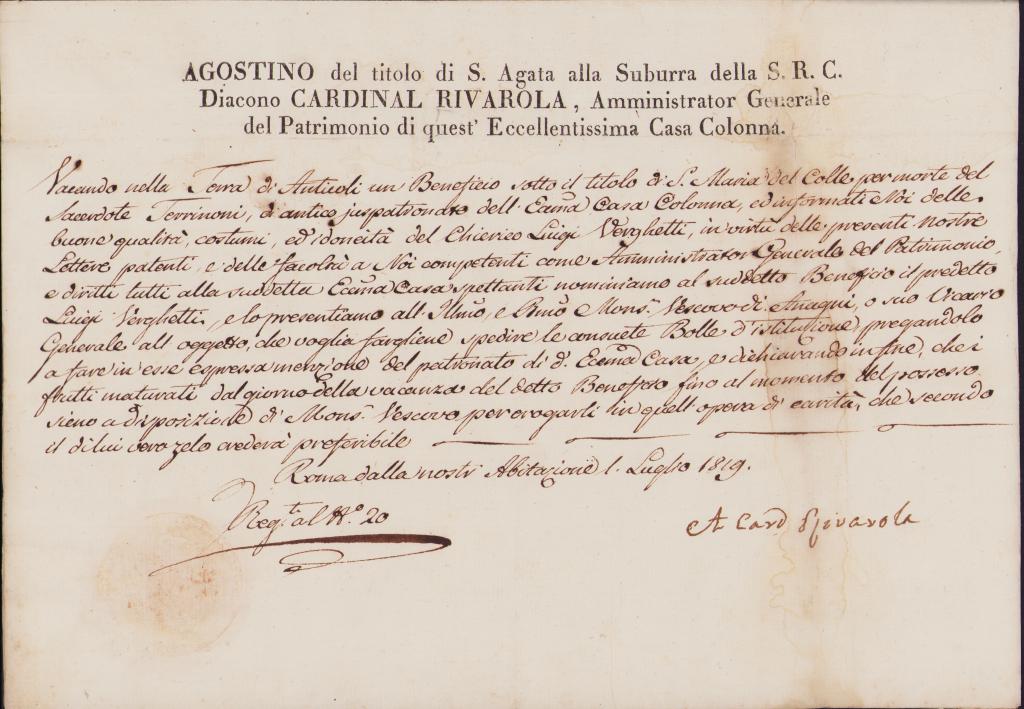 AGOSTINO del titolo di S. Agata alla Suburra della S. R. C.
Diacono CARDINAL RIVAROLA, Amministrator Generale
del Patrimonio di quest' Eccellentissima Casa Colonna.
Vacando nella Terra di Anticoli un Beneficio sotto il titolo di S. Maria del Colle per morte del
Sacerdote Terrinoni, di antico juspatronato dell' Ecc͞ma Casa Colonna, ed informati Noi delle
buone qualità, costumi, ed idoneità del Chierico Luigi Verghetti, in virtù delle presenti nostre
Lettere patenti, e delle facoltà a Noi competenti come Amministrator Generale del Patrimonio,
e diritti tutti alla suddetta Ecc͞ma Casa spettanti nominiamo al suddetto Beneficio il predetto
Luigi Verghetti, e lo presentiamo all' Illm̃o, e Rm̃o Mons.r Vescovo di Anagni, o suo Vicario
Generale all' oggetto, che voglia fargliene spedire le consuete Bolle d'istituzione, pregandolo
a fare in esse espressa menzione del patronato di d.a Ecc͞ma Casa, e dichiarando infine, che i
frutti maturati dal giorno della vacanza del detto Beneficio fino al momento del possesso
sieno a disposizione di Mons.r Vescovo per erogarli in quell' opera di carità, che secondo
il di lui vero zelo crederà preferibile
Roma dalla nostr' Abitazione 1. Luglio 1819.
Reg.ta al N.o 20
A Card Rivarola